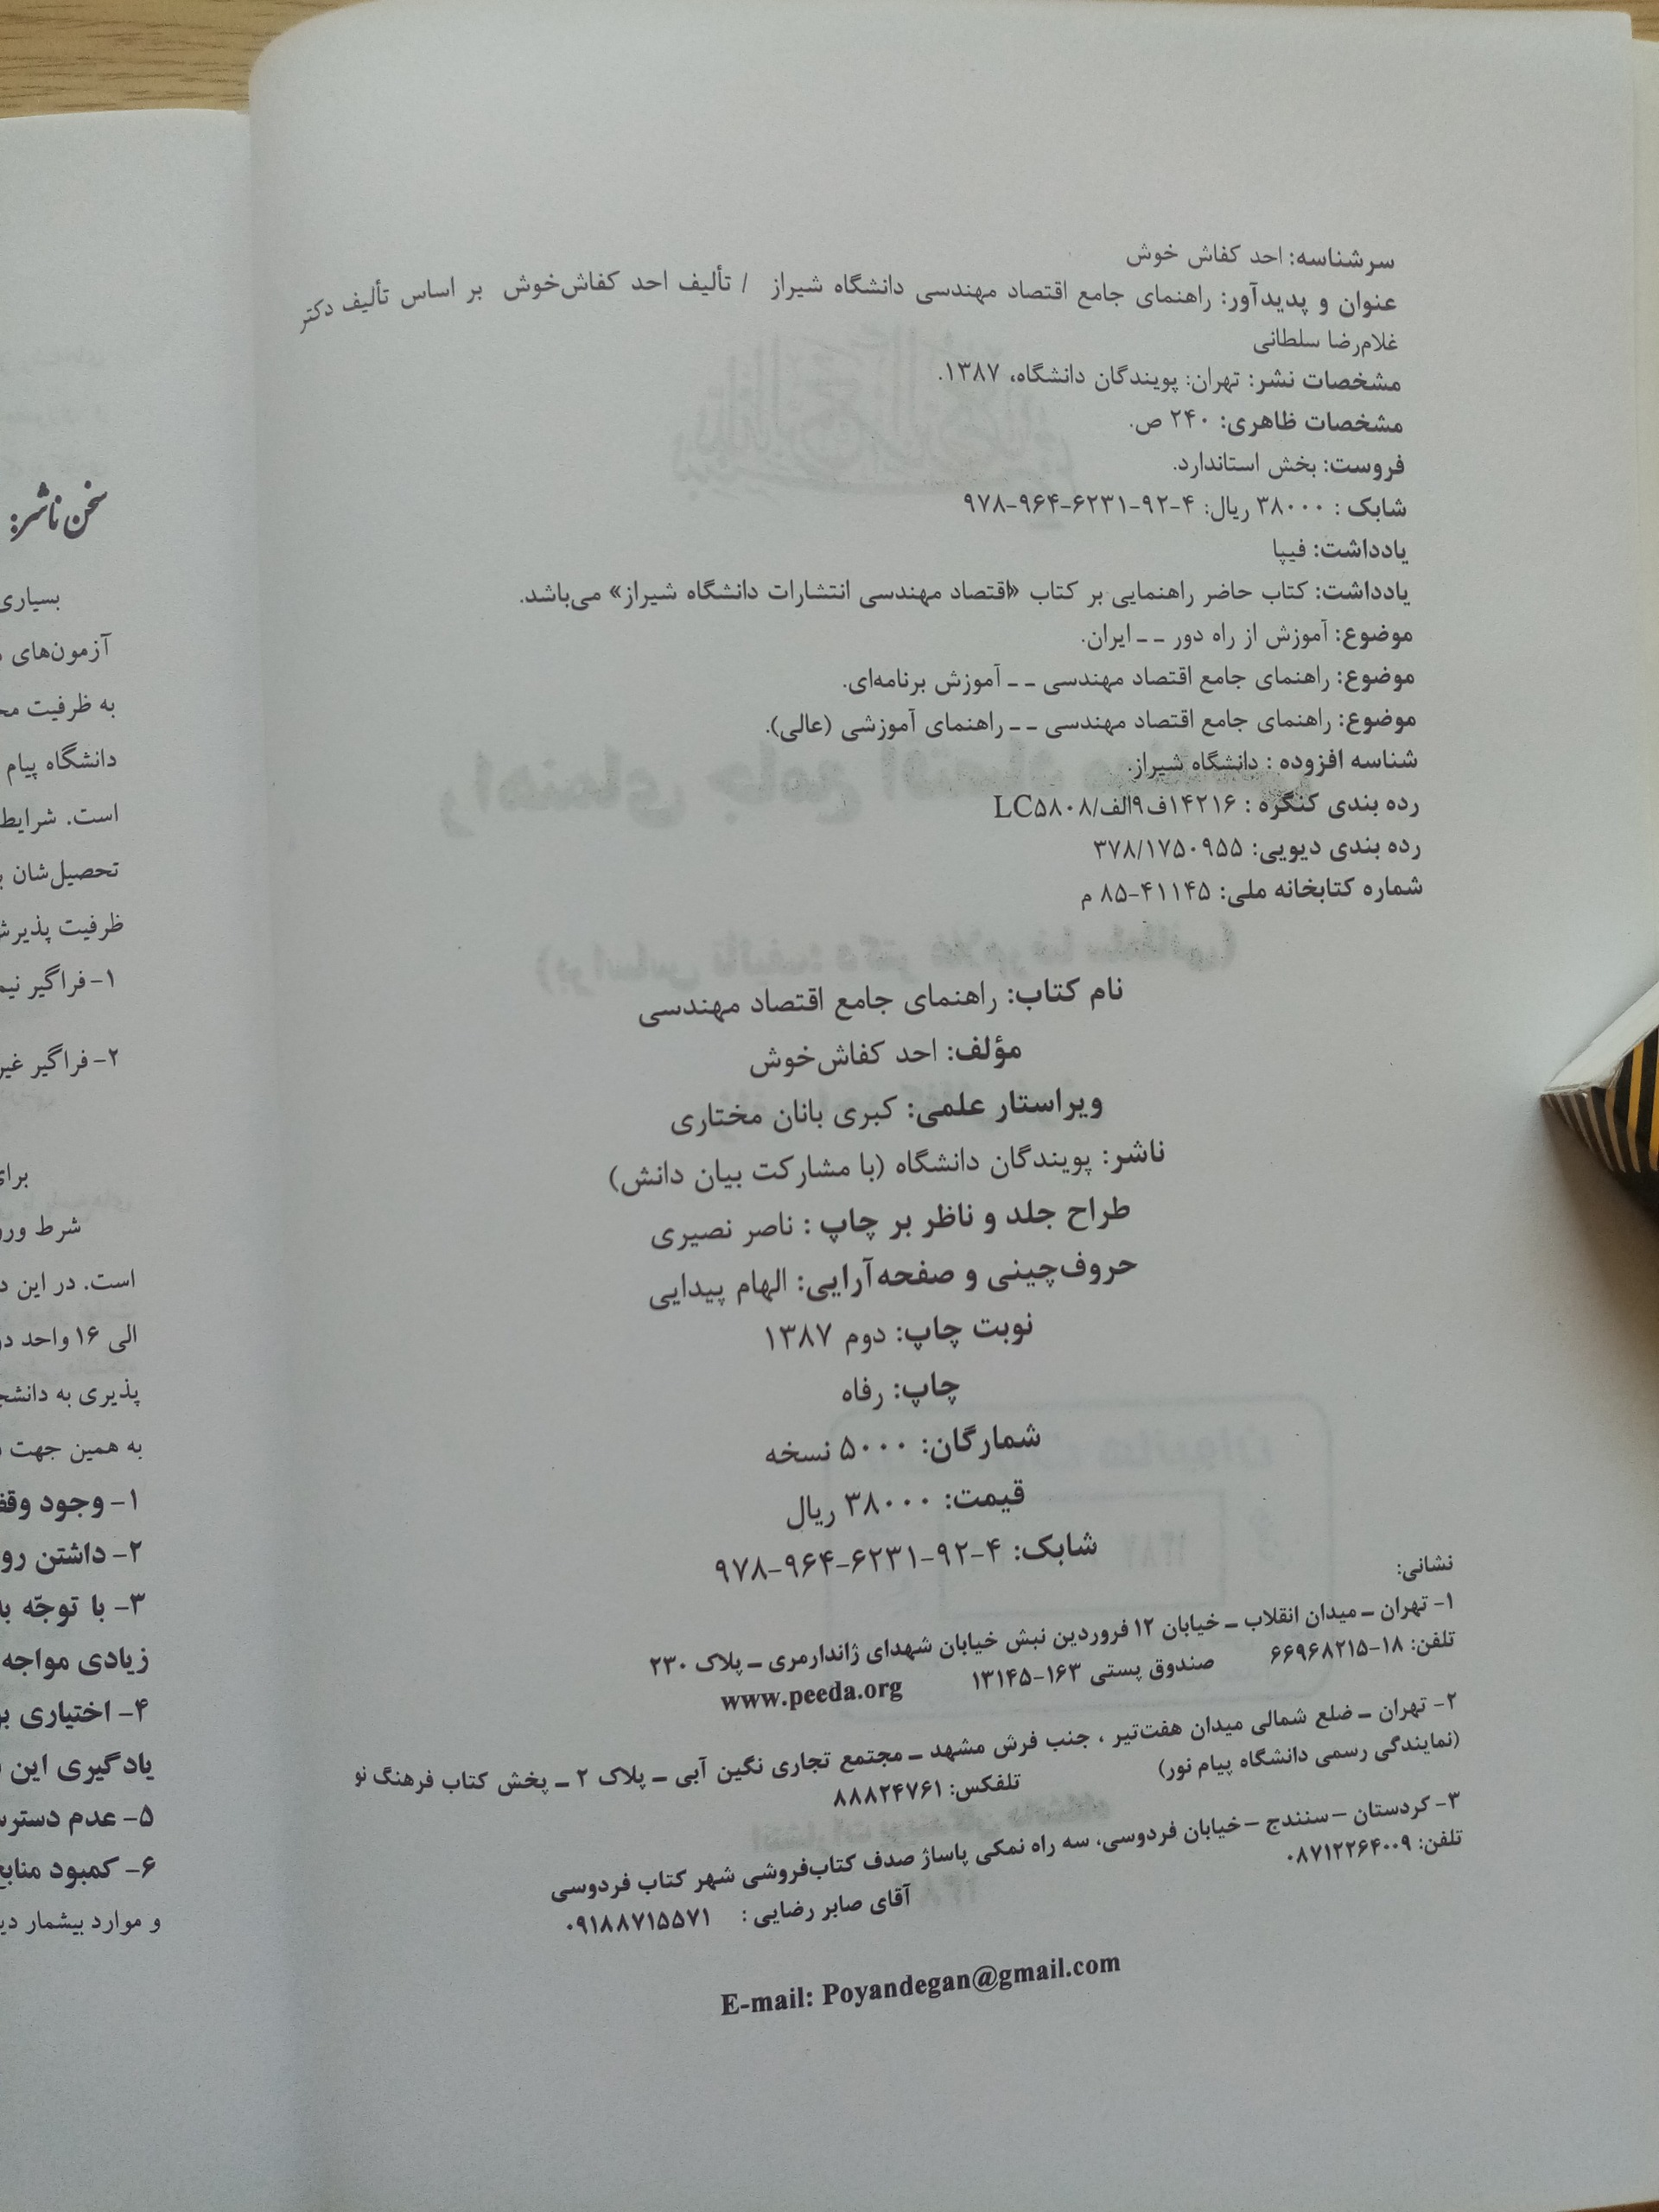 سرشناسه: احد کفاش خوش
عنوان و پدیدآور: راهنمای جامع اقتصاد مهندسی دانشگاه شیراز / تألیف احد کفاش‌خوش بر اساس تألیف دکتر
غلام‌رضا سلطانی
مشخصات نشر: تهران: پویندگان دانشگاه، ۱۳۸۷.
مشخصات ظاهری: ۲۴۰ ص.
فروست: بخش استاندارد.
شابک : ۳۸۰۰۰ ریال: ۴-۹۲-۶۲۳۱-۹۶۴-۹۷۸
یادداشت: فیپا
یادداشت: کتاب حاضر راهنمایی بر کتاب «اقتصاد مهندسی انتشارات دانشگاه شیراز» می‌باشد.
موضوع: آموزش از راه دور ـ ـ ایران.
موضوع: راهنمای جامع اقتصاد مهندسی ـ ـ آموزش برنامه‌ای.
موضوع: راهنمای جامع اقتصاد مهندسی ـ ـ راهنمای آموزشی (عالی).
شناسه افزوده : دانشگاه شیراز.
رده بندی کنگره : ۱۴۲۱۶ف۹الف/LC۵۸۰۸
رده بندی دیویی: ۳۷۸/۱۷۵۰۹۵۵
شماره کتابخانه ملی: ۴۱۱۴۵-۸۵ م
نام کتاب: راهنمای جامع اقتصاد مهندسی
مؤلف: احد کفاش‌خوش
ویراستار علمی: کبری بانان مختاری
ناشر: پویندگان دانشگاه (با مشارکت بیان دانش)
طراح جلد و ناظر بر چاپ : ناصر نصیری
حروف‌چینی و صفحه‌آرایی: الهام پیدایی
نوبت چاپ: دوم ۱۳۸۷
چاپ: رفاه
شمارگان: ۵۰۰۰ نسخه
قیمت: ۳۸۰۰۰ ریال
شابک: ۴-۹۲-۶۲۳۱-۹۶۴-۹۷۸
نشانی:
۱- تهران ـ میدان انقلاب ـ خیابان ۱۲ فروردین نبش خیابان شهدای ژاندارمری ـ پلاک ۲۳۰
تلفن: ۱۸-۶۶۹۶۸۲۱۵ صندوق پستی ۱۶۳-۱۳۱۴۵ www.peeda.org
۲- تهران ـ ضلع شمالی میدان هفت‌تیر ، جنب فرش مشهد ـ مجتمع تجاری نگین آبی ـ پلاک ۲ ـ پخش کتاب فرهنگ نو
(نمایندگی رسمی دانشگاه پیام نور) تلفکس: ۸۸۸۲۴۷۶۱
۳- کردستان - سنندج - خیابان فردوسی، سه راه نمکی پاساژ صدف کتاب‌فروشی شهر کتاب فردوسی
تلفن: ۰۸۷۱۲۲۶۴۰۰۹ آقای صابر رضایی : ۰۹۱۸۸۷۱۵۵۷۱
E-mail: Poyandegan@gmail.com
سخن ناشر:
بسیاری
آزمون‌های
به ظرفیت
دانشگاه پیام
است. شرایط
تحصیل‌شان
ظرفیت
۱- فراگیر
۲- فراگیر
شرط
است. در این
الی ۱۶ واحد
پذیری به
به همین جهت
۱- وجود
۲- داشتن
۳- با توجّه
زیادی مواجه
۴- اختیاری
یادگیری این
۵- عدم
۶- کمبود
و موارد بیشمار